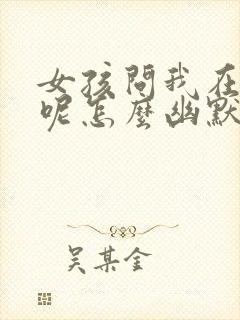 女孩問我在
呢怎麼幽默
吴某金